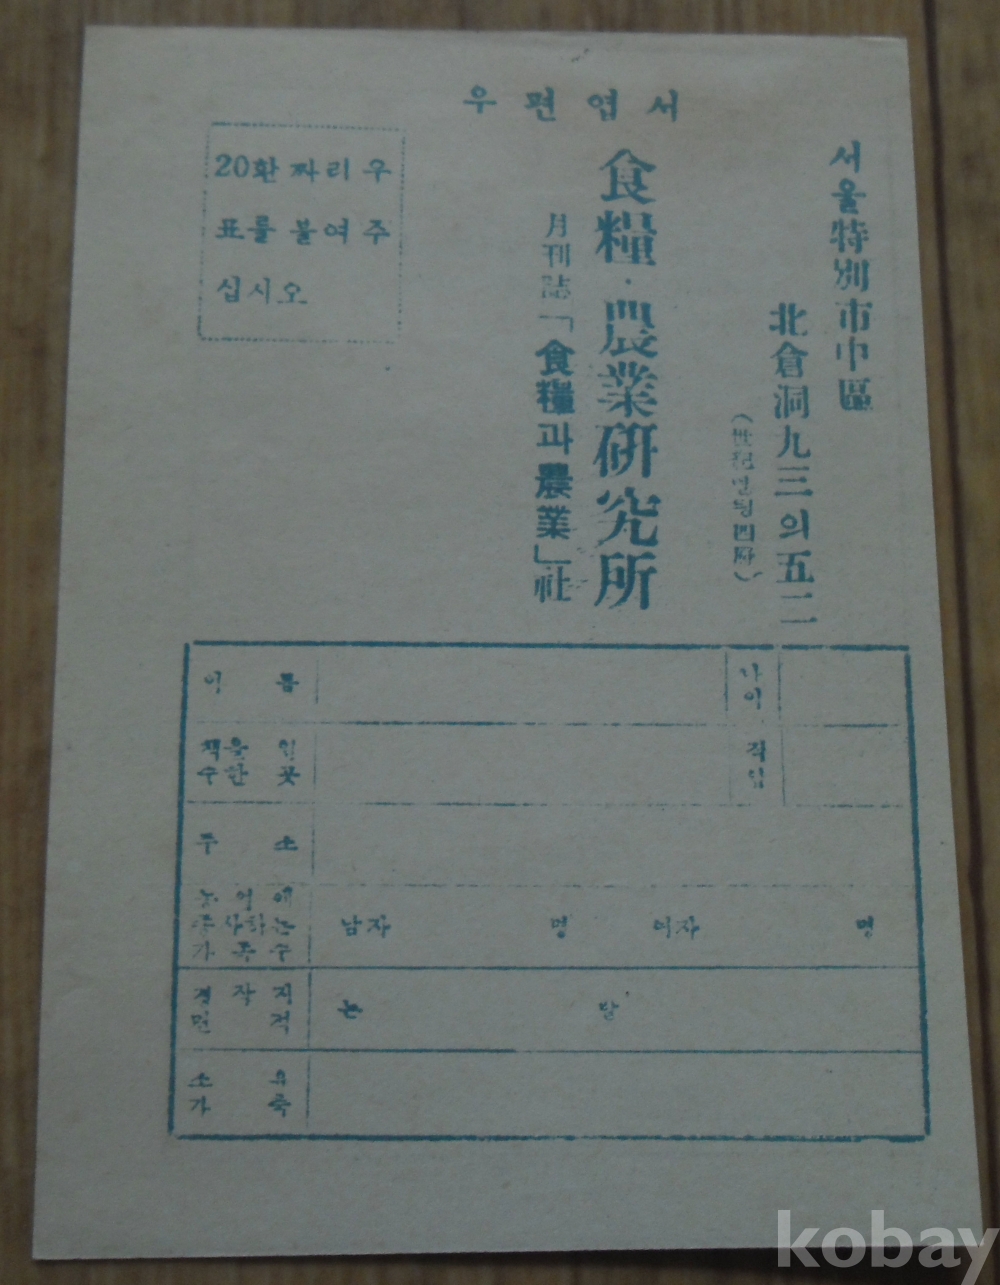 우편엽서
서울特別市中區
北倉洞九三의五二
(世紀빌딩四層)
食糧·農業研究所
月刊誌「食糧과農業」社
20환 짜리 우
표를 붙여 주
십시오
이 름
나이
책을 읽
수한 곳
직업
주 소
농 어 에
종사하는
가 족 수
남자 명 여자 명
경 작 지
면 적
논 밭
소 유
가 축
kobay